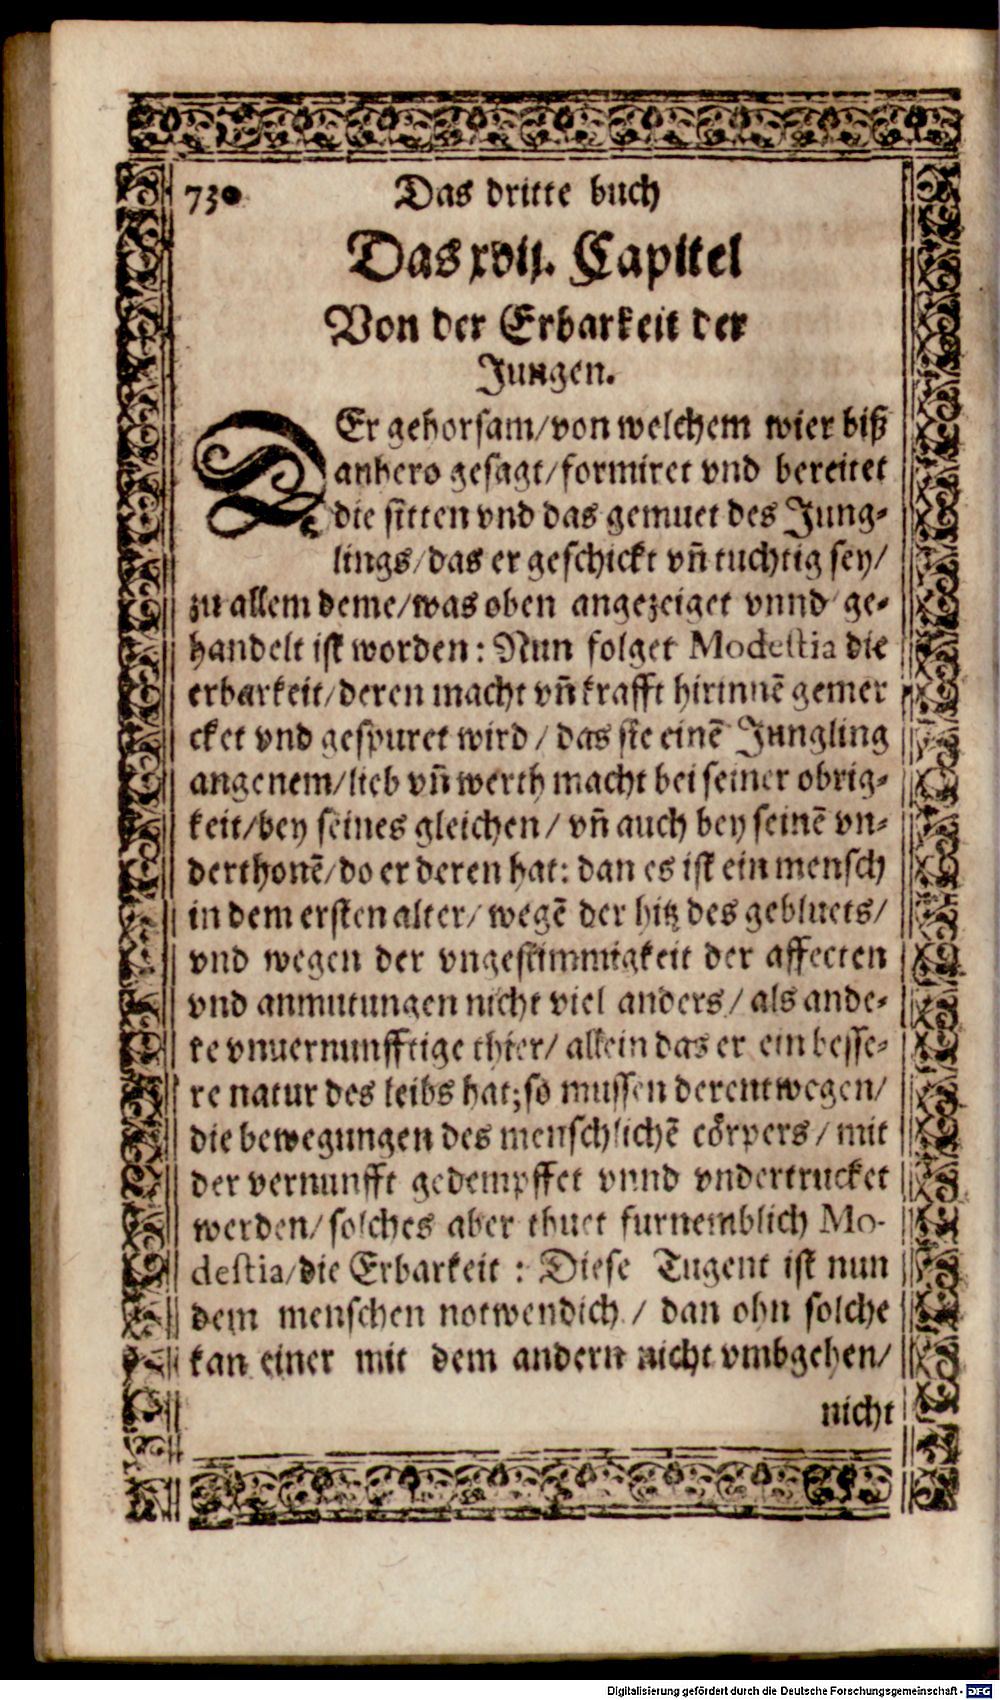 730 Das dritte buch
Das xvij. Capitel
Von der Erbarkeit der
Jungen.
DEr gehorsam/von welchem wier biß
anhero gesagt/formiret vnd bereitet
die sitten vnd das gemuet des Jung-
lings/das er geschickt vñ tuchtig sey/
zu allem deme/was oben angezeiget vnnd ge-
handelt ist worden: Nun folget Modestia die
erbarkeit/deren macht vñ krafft hirinnẽ gemer
cket vnd gespuret wird/das sie einẽ Jungling
angenem/lieb vñ werth macht bei seiner obrig-
keit/bey seines gleichen/vñ auch bey seinẽ vn-
derthonẽ/do er deren hat: dan es ist ein mensch
in dem ersten alter/wegẽ der hitz des gebluets/
vnd wegen der vngestimmigkeit der affecten
vnd anmutungen nicht viel anders/als ande-
re vnuernunfftige thier/allein das er ein besse-
re natur des leibs hat; so mussen derentwegen/
die bewegungen des menschlichẽ cörpers/mit
der vernunfft gedempffet vnnd vndertrucket
werden/solches aber thuet furnemblich Mo-
destia/die Erbarkeit: Diese Tugent ist nun
dem menschen notwendich/dan ohn solche
kan einer mit dem andern nicht vmbgehen/
nicht
Digitalisierung gefördert durch die Deutsche Forschungsgemeinschaft - DFG